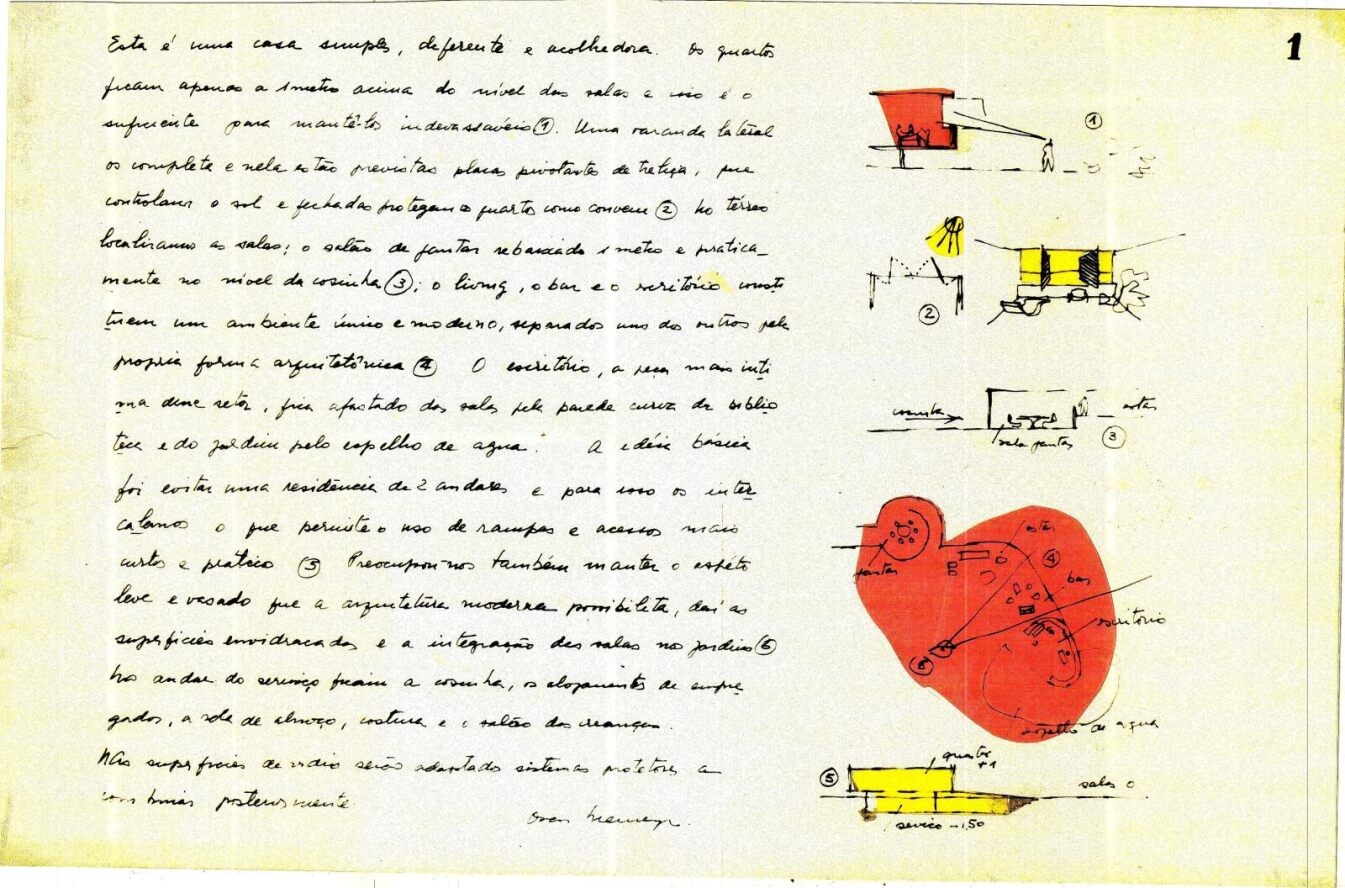 1
Esta é uma casa simples, deferente e acolhedora. Os quartos
ficam apenas a 1 metro acima do nível das salas e isso é o
suficiente para mantê-los indevassáveis ①. Uma varanda lateral
os completa e nela estão previstas placas pivotantes de treliça, que
controlam o sol e fechadas protegem o quarto como convem ② No térreo
localizamos as salas; o salão de jantar rebaixado 1 metro e pratica-
mente no nível da cosinha ③; o living, o bar e o escritório consti
tuem um ambiente único e moderno, separados uns dos outros pela
propria forma arquitetônica ④ O escritório, a peça mais inti
ma desse setor, fica afastado das salas pela parede curva da biblio
teca e do jardim pelo espelho de agua. A idéia básica
foi evitar uma residência de 2 andares e para isso os inter
calamos o que permite o uso de rampas e acessos mais
curtos e prático ⑤ Preocupou-nos também manter o aspéto
leve e vasado que a arquitetura moderna possibilita, daí as
superficies envidraçadas e a integração das salas no jardim ⑥
No andar do serviço ficam a cosinha, os alojamentos de empre
gados, a sala de almoço, costura e o salão das crianças.
Nas superficies de vidro serão adaptados sistemas protetores a
combinar posteriormente
Oscar Niemeyer.
①
②
cosinha
estar
sala jantar
③
estar
④
jantar
bar
escritório
⑥
espelho de agua
⑤
quartos
+1
salas 0
serviço -1,50